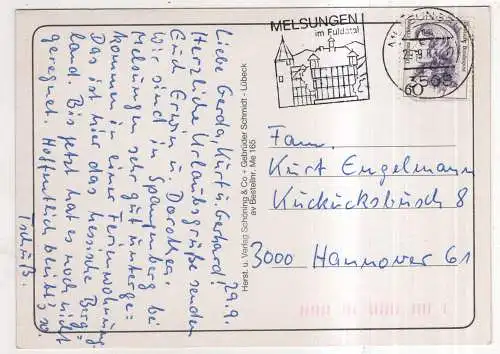 29.9.
Liebe Gerda, Kurt u. Gerhard!
Herzliche Urlaubsgrüße senden
Euch Erwin u. Dorothea.
Wir sind in Spangenberg bei
Melsungen sehr gut unterge=
kommen in einer Ferienwohnung.
Das ist hier das hessische Berg=
land. Bis jetzt hat es noch nicht
geregnet. Hoffentlich bleibt's so.
Tschüß.
Herst. u. Verlag Schöning & Co + Gebrüder Schmidt - Lübeck
av Bestellnr. Me 165
MELSUNGEN
im Fuldatal
MELSUNGEN
3508
60
Fam.
Kurt Engelmann
Kuckucksbusch 8
3000 Hannover 61